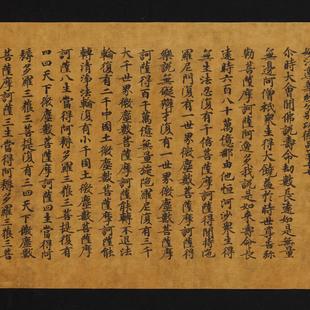 尒時大會聞佛說壽命劫數長遠如是無量
無邊阿僧祇衆生得大饒益於時世尊告弥
勒菩薩摩訶薩阿逸多我說是如来壽命長
遠時六百八十萬億那由他恒河沙衆生得
無生法忍復有千倍菩薩摩訶薩得聞持陁
羅尼門復有一世界微塵數菩薩摩訶薩得
樂說無礙辯才復有一世界微塵數菩薩摩
訶薩得百千萬億無量旋陁羅尼復有三千
大千世界微塵數菩薩摩訶薩能轉不退法
輪復有二千中國土微塵數菩薩摩訶薩能
轉清淨法輪復有小千國土微塵數菩薩摩
訶薩八生當得阿耨多羅三藐三菩提復有
四四天下微塵數菩薩摩訶薩四生當得阿
耨多羅三藐三菩提復有三四天下微塵數
菩薩摩訶薩三生當得阿耨多羅三藐三菩